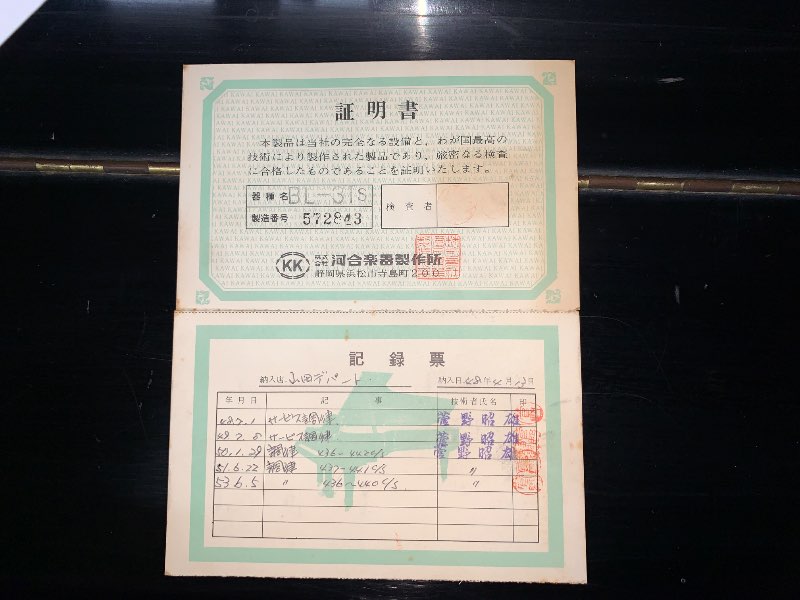 証明書
本製品は当社の完全なる設備と、わが国最高の
技術により製作された製品であり、厳密なる検査
に合格したものであることを証明いたします。
器種名 BL-31S
製造番号
検査者
KK 株式会社 河合楽器製作所
静岡県浜松市寺島町200
記録票
納入店 山田デパート 納入日 年 月 日
年月日 記事 技術者氏名 印
サービス調律 菅野昭雄
サービス調律 菅野昭雄
50.1.29 調律 436~442c/s 菅野昭雄
51.6.22 調律 437~441c/s 〃
53.6.5 〃 436~440c/s 〃